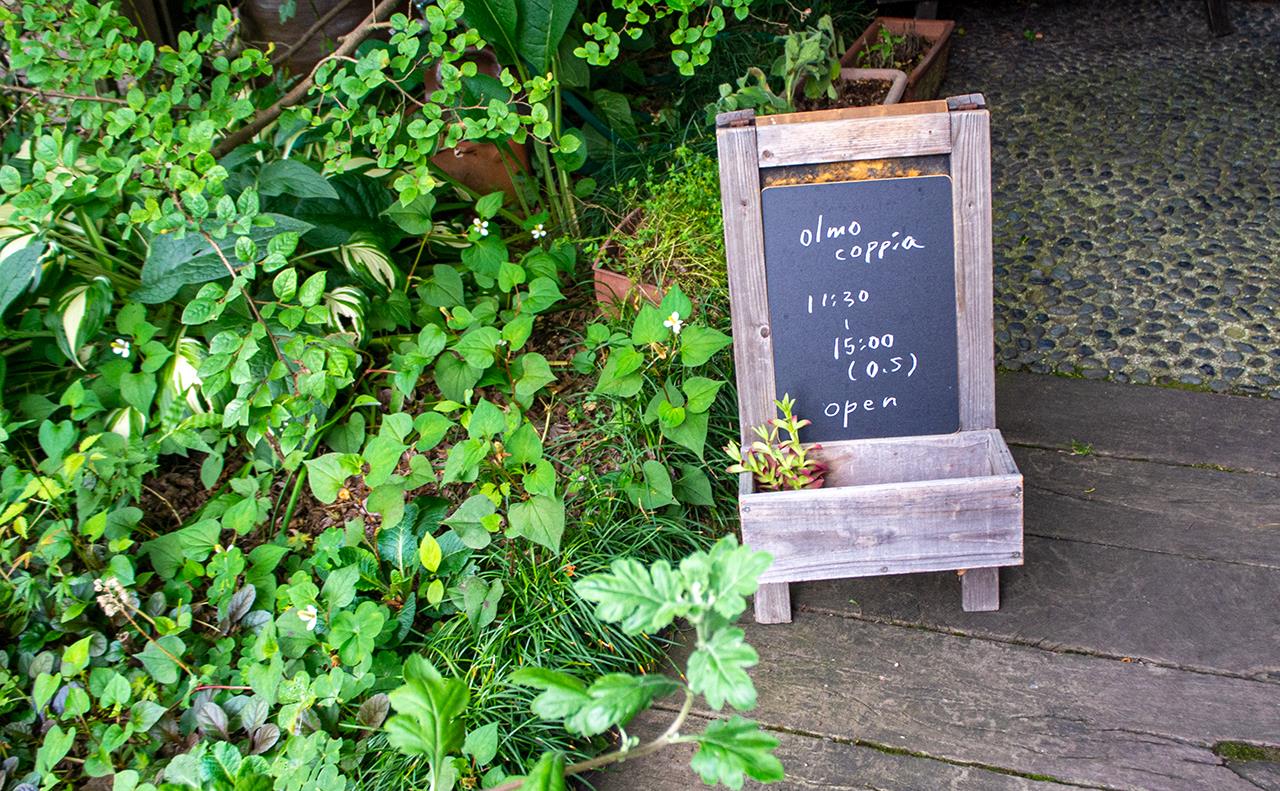 olmo
coppia
11:30
~
15:00
(O.S)
open